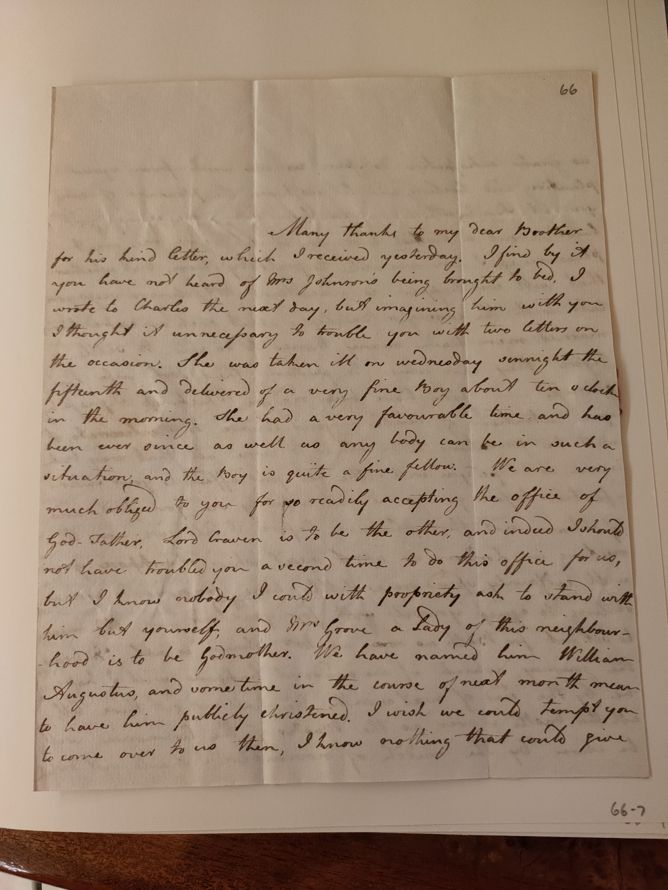 66
Many thanks to my dear Brother
for his kind letter, which I received yesterday. I find by it
you have not heard of Mrs Johnson's being brought to bed, I
wrote to Charles the next day, but imagining him with you
I thought it unnecessary to trouble you with two letters on
the occasion. She was taken ill on wednesday sennight the
fifteenth and delivered of a very fine Boy about ten o'clock
in the morning. She had a very favourable time and has
been ever since as well as any body can be in such a
situation, and the Boy is quite a fine fellow. We are very
much obliged to you for so readily accepting the office of
God-Father, Lord Craven is to be the other, and indeed I should
not have troubled you a second time to do this office for us,
but I know nobody I could with propriety ask to stand with
him but yourself, and Mrs Grove a Lady of this neighbour-
-hood is to be Godmother. We have named him William
Augustus, and some time in the course of next month mean
to have him publicly christened. I wish we could tempt you
to come over to us then, I know nothing that could give
66-7